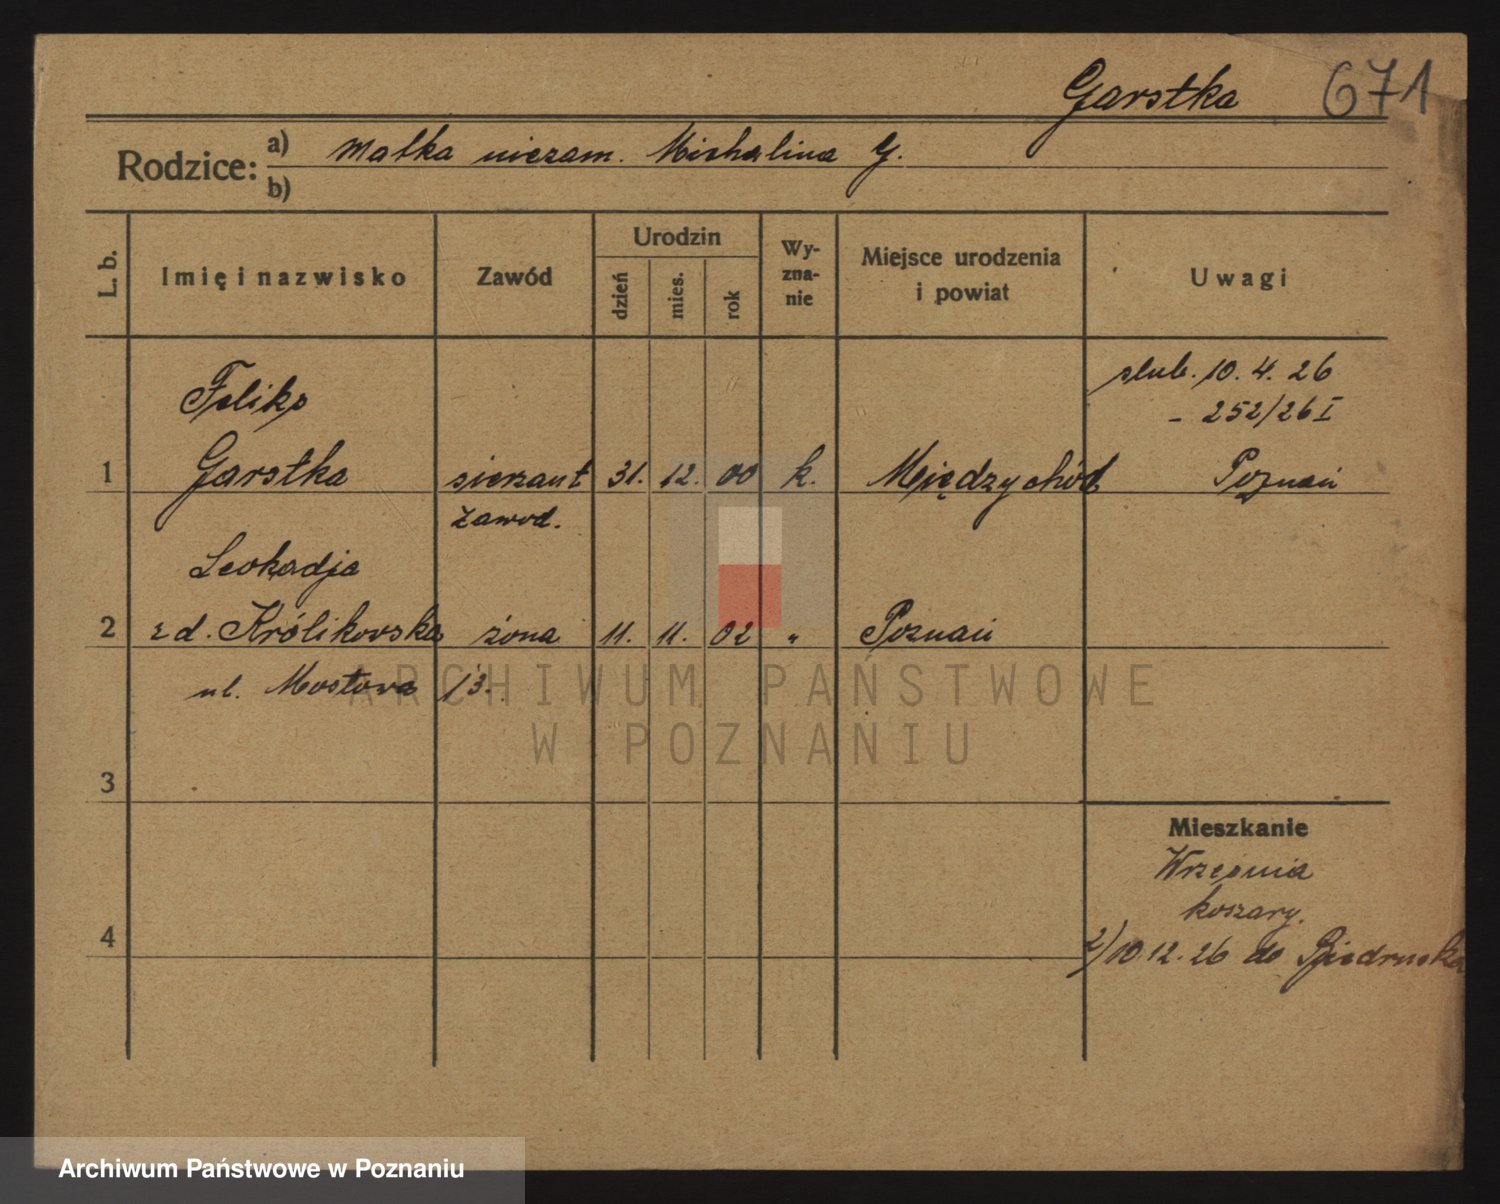 Garstka 671
Rodzice: a) Matka niezam. Michalina G.
b)
L. b. Imię i nazwisko Zawód Urodzin dzień mies. rok Wy-zna-nie Miejsce urodzenia i powiat Uwagi
ślub. 10. 4. 26
Feliks
- 252/26 I
1 Garstka sierżant 31. 12. 00 k. Międzychód Poznań
zawod.
Leokadja
2 z d. Królikowska żona 11. 11. 02 " Poznań
ul. Mostowa 13.
3
Mieszkanie
Września
koszary.
4
2) 10.12.26 do Biedruska
ARCHIWUM PAŃSTWOWE
W POZNANIU
Archiwum Państwowe w Poznaniu